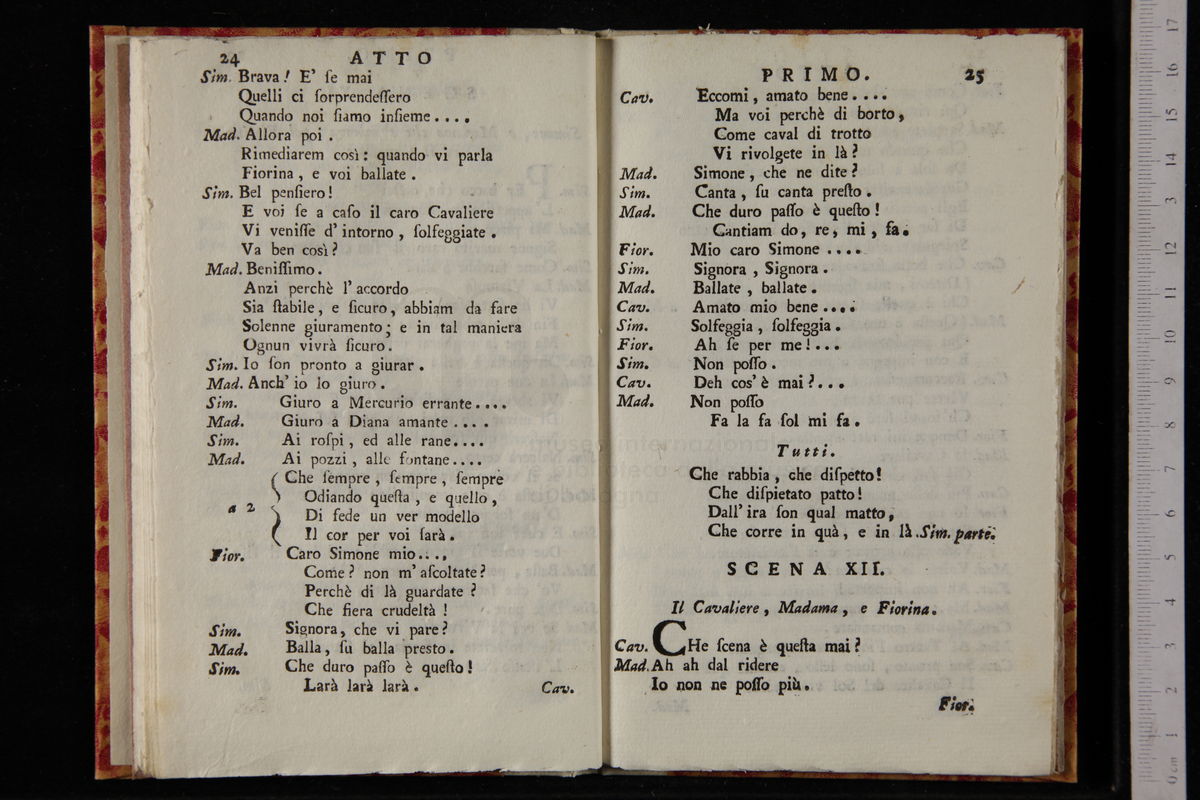 24 ATTO
Sim. Brava! E' ſe mai
Quelli ci ſorprendeſſero
Quando noi ſiamo inſieme....
Mad. Allora poi.
Rimediarem così: quando vi parla
Fiorina, e voi ballate.
Sim. Bel penſiero!
E voi ſe a caſo il caro Cavaliere
Vi veniſſe d'intorno, ſolfeggiate.
Va ben così?
Mad. Beniſſimo.
Anzi perchè l'accordo
Sia ſtabile, e ſicuro, abbiam da fare
Solenne giuramento; e in tal maniera
Ognun vivrà ſicuro.
Sim. Io ſon pronto a giurar.
Mad. Anch' io lo giuro.
Sim. Giuro a Mercurio errante....
Mad. Giuro a Diana amante....
Sim. Ai roſpi, ed alle rane....
Mad. Ai pozzi, alle fontane....
Che ſempre, ſempre, ſempre
Odiando queſta, e quello,
a 2 Di fede un ver modello
Il cor per voi ſarà.
Fior. Caro Simone mio....
Come? non m'aſcoltate?
Perchè di là guardate?
Che fiera crudeltà!
Sim. Signora, che vi pare?
Mad. Balla, ſu balla presto.
Sim. Che duro paſſo è queſto!
Larà larà larà.
Cav.
PRIMO. 25
Cav. Eccomi, amato bene....
Ma voi perchè di borto,
Come caval di trotto
Vi rivolgete in là?
Mad. Simone, che ne dite?
Sim. Canta, ſu canta preſto.
Mad. Che duro paſſo è queſto!
Cantiam do, re, mi, fa.
Fior. Mio caro Simone....
Sim. Signora, Signora.
Mad. Ballate, ballate.
Cav. Amato mio bene....
Sim. Solfeggia, ſolfeggia.
Fior. Ah ſe per me!...
Sim. Non poſſo.
Cav. Deh cos'è mai?...
Mad. Non poſſo
Fa la fa ſol mi fa.
Tutti.
Che rabbia, che diſpetto!
Che diſpietato patto!
Dall'ira ſon qual matto,
Che corre in quà, e in là. Sim. parte.
SCENA XII.
Il Cavaliere, Madama, e Fiorina.
Cav. CHe ſcena è queſta mai?
Mad. Ah ah dal ridere
Io non ne poſſo più.
Fior.